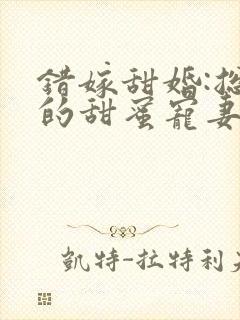 错嫁甜婚:
的甜蜜寵妻
凱特-拉特利